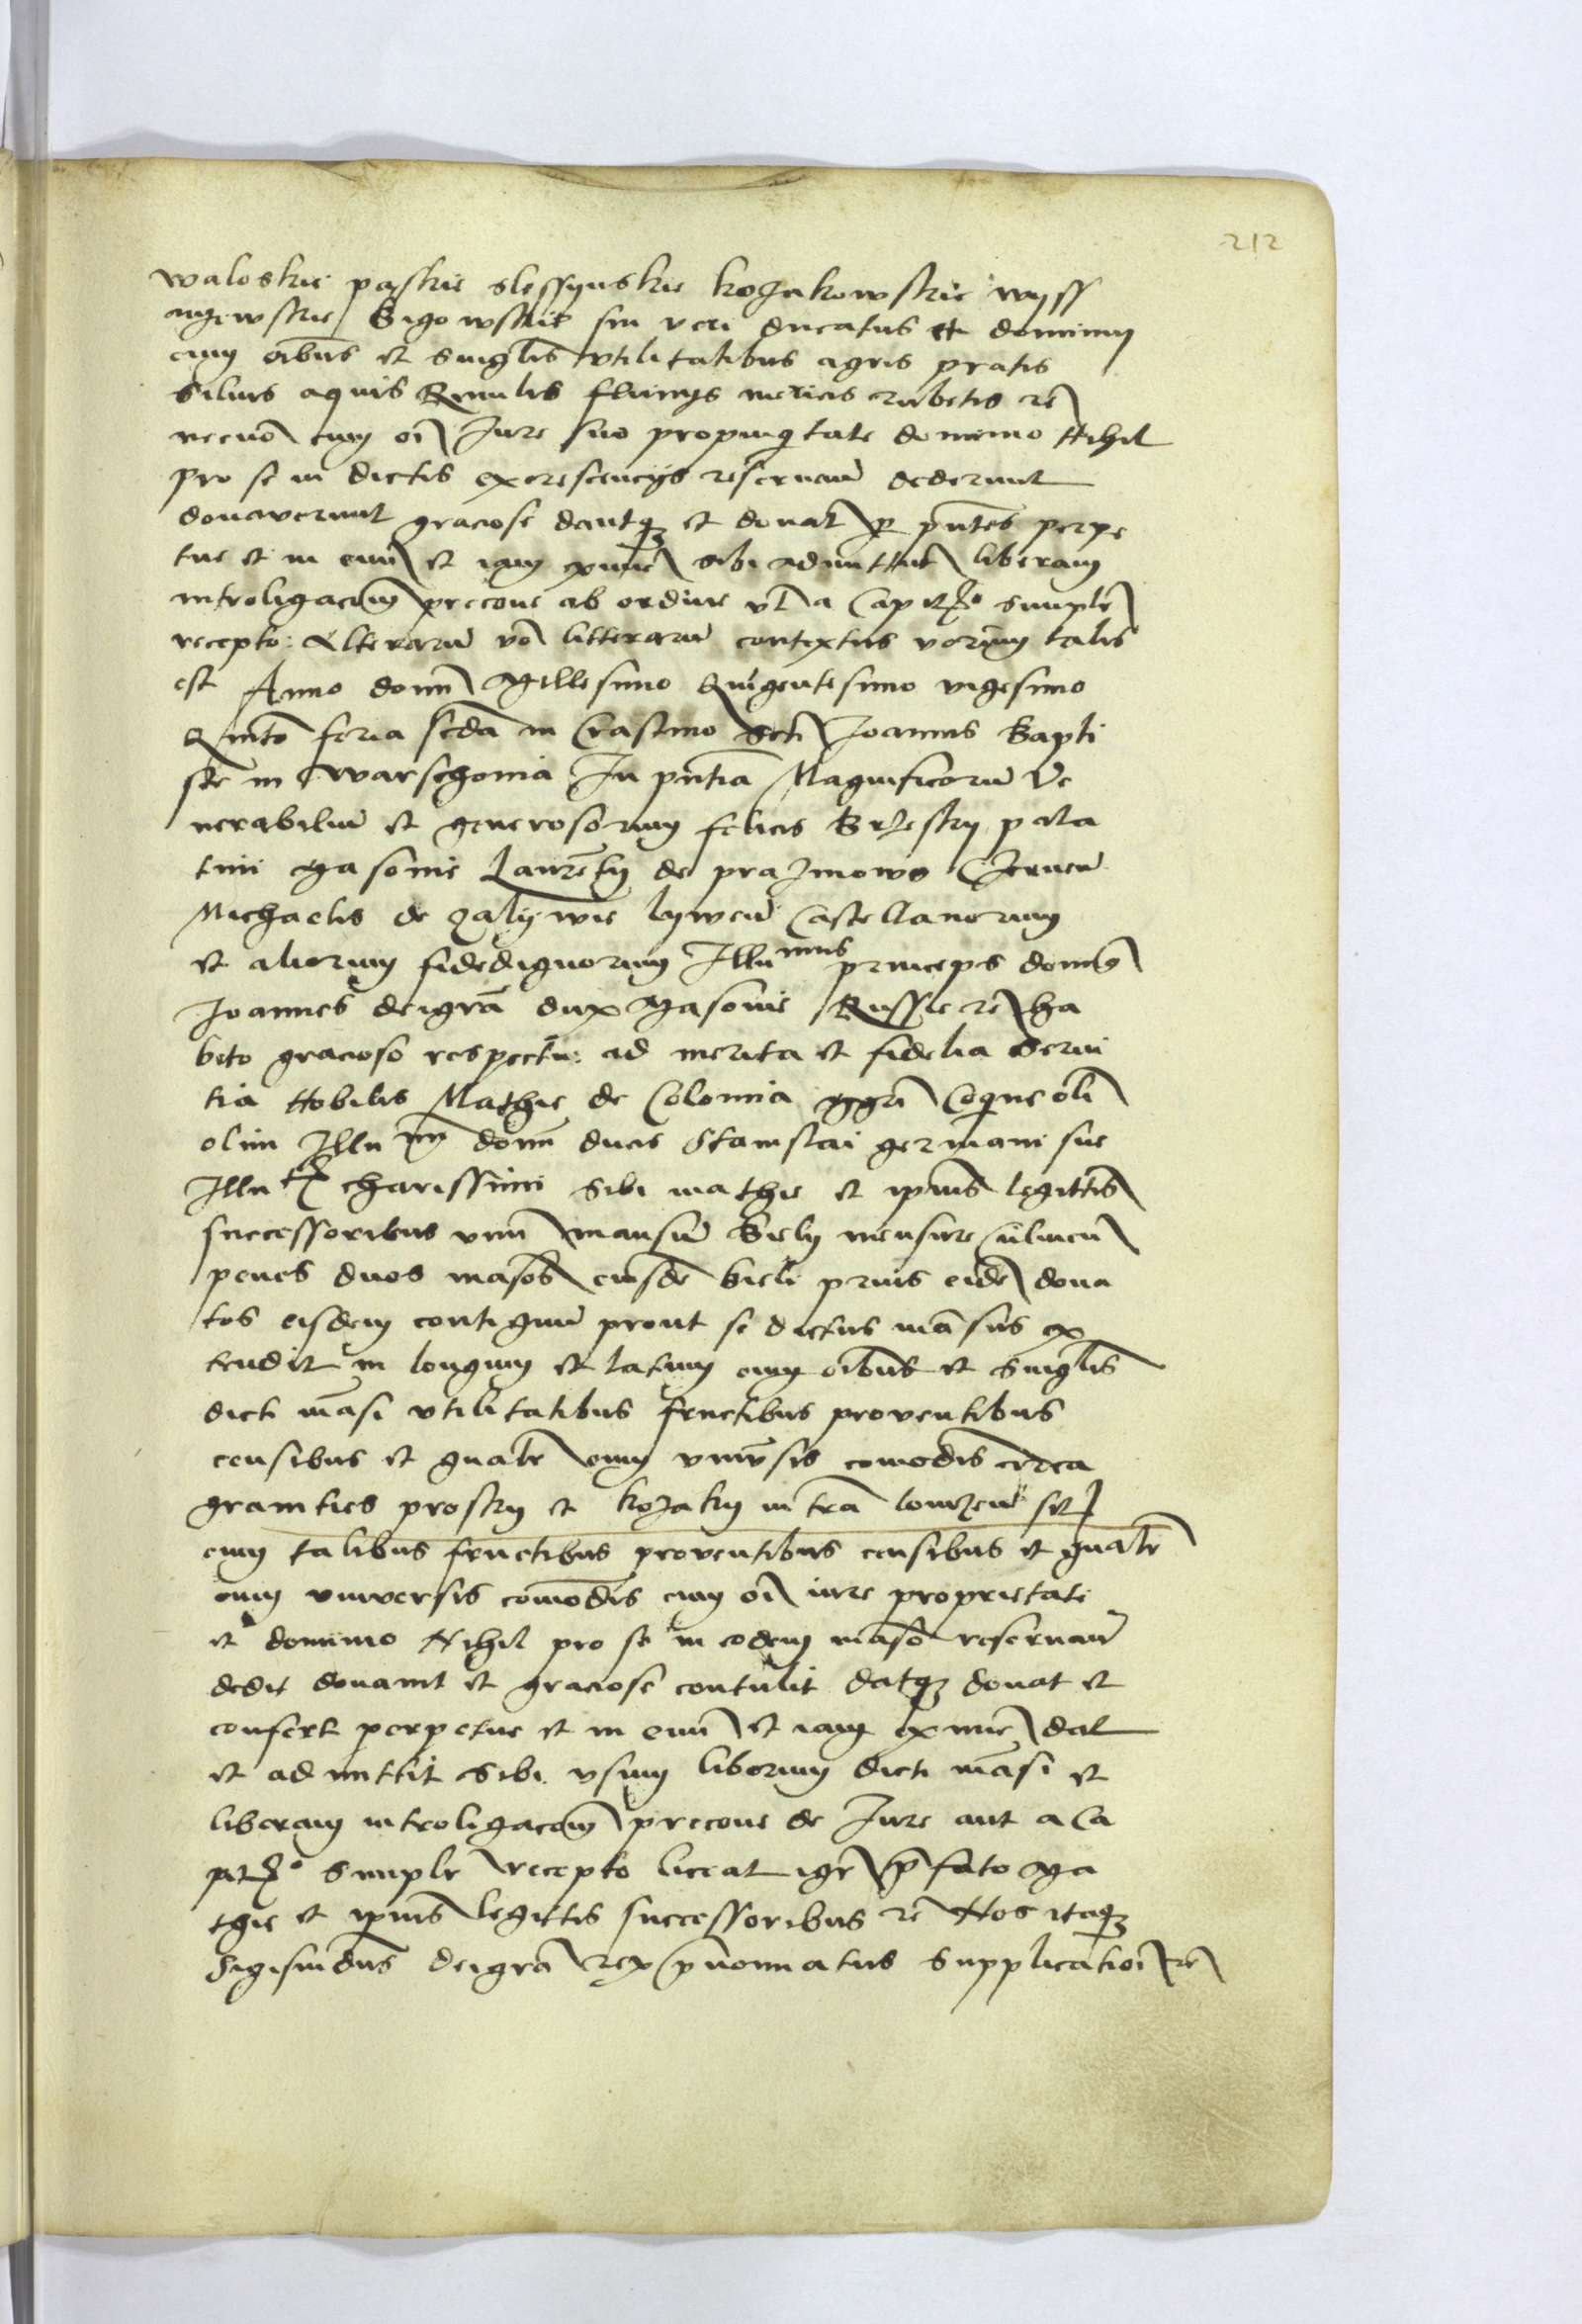 212
waloskie paskie slessynskie kozakowskie wyss
myewskie Bigowskie sui veri ducatus et dominium
cum oibus et singlis vtilitatibus agris pratis
siluis aquis Riuulis fluuijs mericis rubetis rc
necno cum oi Jure suo propinqtate dominio Nihil
pro se in dictis excrescencijs reseruan dederunt
donaverunt graciose dantqz et donat p pntes perpe
tue et in euu et iam exnuc sibi admittut liberam
introligacom precone ab ordine vl a Capit simplr
recepto: Alterarum vo litterarum contextus verum talis
est Anno domi Millesimo Quigentesimo vigesimo
Quinto feria scda in Crastino scti Joannis Bapti
ste in Warschouia In pntia Magnificoru Ve
nerabiliu et generosorum felicis Brzesky pala
tini Masouie Laurety de prazmowo Czernen
Michaelis de zalywie lywen Castellanorum
et aliorum fidedignorum Illu mus princeps domis
Joannes dei gra dux Masouie Russie rc ha
bito gracioso respectu: ad merita et fidelia serui
tia Nobilis Mathie de Colomia Coqine oli
olim Illu mi domi ducis Stanislai germani sue
Illu charissimi sibi mathie et ipius legittis
successoribus vnu mansu Biely mensure Culmen
penes duos masos eiusde bieli prius eide dona
tos eisdem contiguu prout se dictus masus ex
tendit in longum et latum cum oibus et singlis
dicti masi vtilitatibus fructibus prouentibus
censibus et gnalr cum vniursis comodis circa
granities prosky et kozaky in tra lomzen sit
cum talibus fructibus prouentibus censibus et gnalr
cum vniuersis comodis cum oi iure proprietate
et dominio Nihil pro se in eodem maso reseruan
dedit donauit et graciose contulit datqz donat et
confert perpetue et in euu et iam exnuc dat
et admittit sibi vsum liberum dicti masi et
liberam introligacom precone de Jure aut a Ca
pit simplr recepto liceat igr pfato Ma
thie et ipius legittis successoribus rc Nos itaqz
Sigismdus dei gra rex pnominatus supplicatioi rc